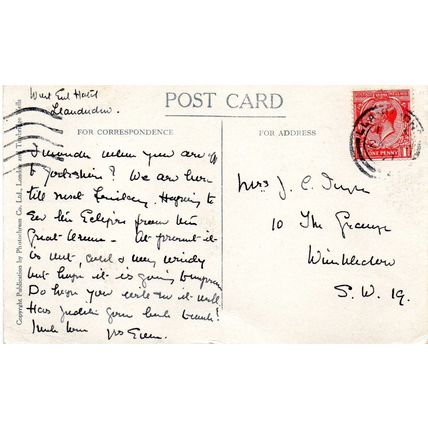 West End Hotel
Llandudno.
POST CARD
FOR CORRESPONDENCE
FOR ADDRESS
I wonder when you are off
to Yorkshire? We are here
till next Hoping to
see the Eclipse from the
Great Orme - At present it
is wet, cold & very windy
but hope it is going to improve
Do hope you are well
Has gone back
Much love
Mrs J. C.
10 The Grange
Wimbledon
S. W. 19.
ONE PENNY
Copyright Publication by Photochrom Co. Ltd., London and Tunbridge Wells